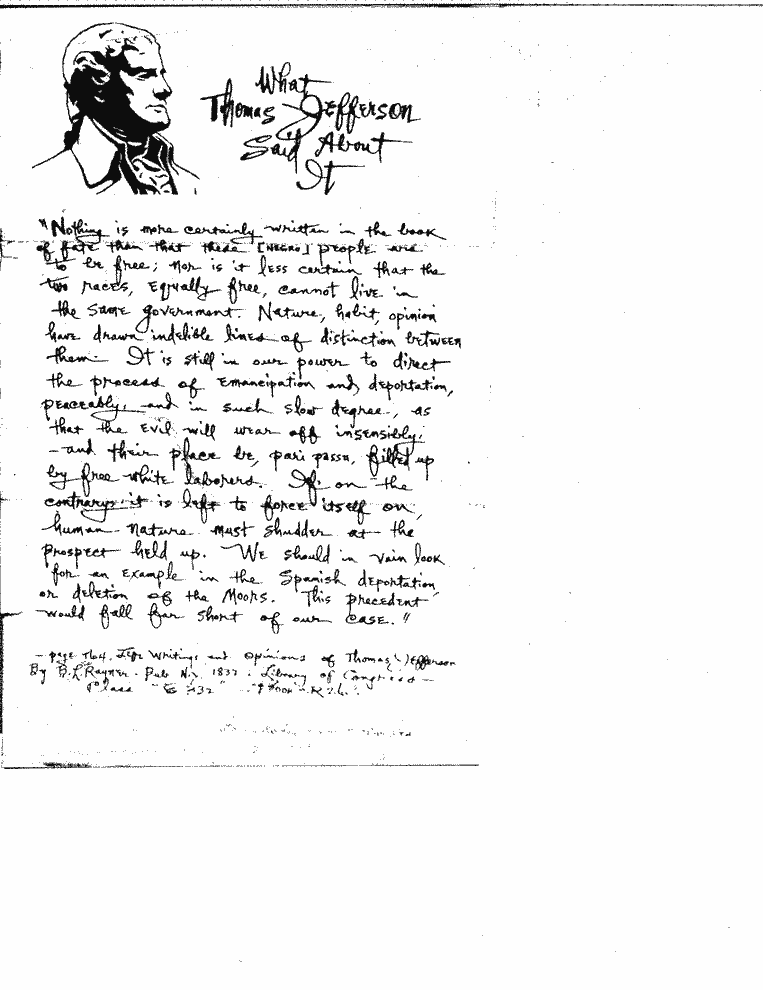 What
Thomas Jefferson
Said About
It
"Nothing is more certainly written in the book
of fate than that these [NEGRO] people are
to be free; nor is it less certain that the
two races, equally free, cannot live in
the same government. Nature, habit, opinion
have drawn indelible lines of distinction between
them. It is still in our power to direct
the process of emancipation and deportation,
peaceably, and in such slow degree, as
that the evil will wear off insensibly,
- and their place be, pari passu, filled up
by free white laborers. If on the
contrary it is left to force itself on,
human nature must shudder at the
prospect held up. We should in vain look
for an example in the Spanish deportation
or deletion of the Moors. This precedent
would fall far short of our case."
- page 164. Life Writings and Opinions of Thomas Jefferson
By B.L. Rayner. Pub N.Y. 1832. Library of Congress -
Class "E 332"